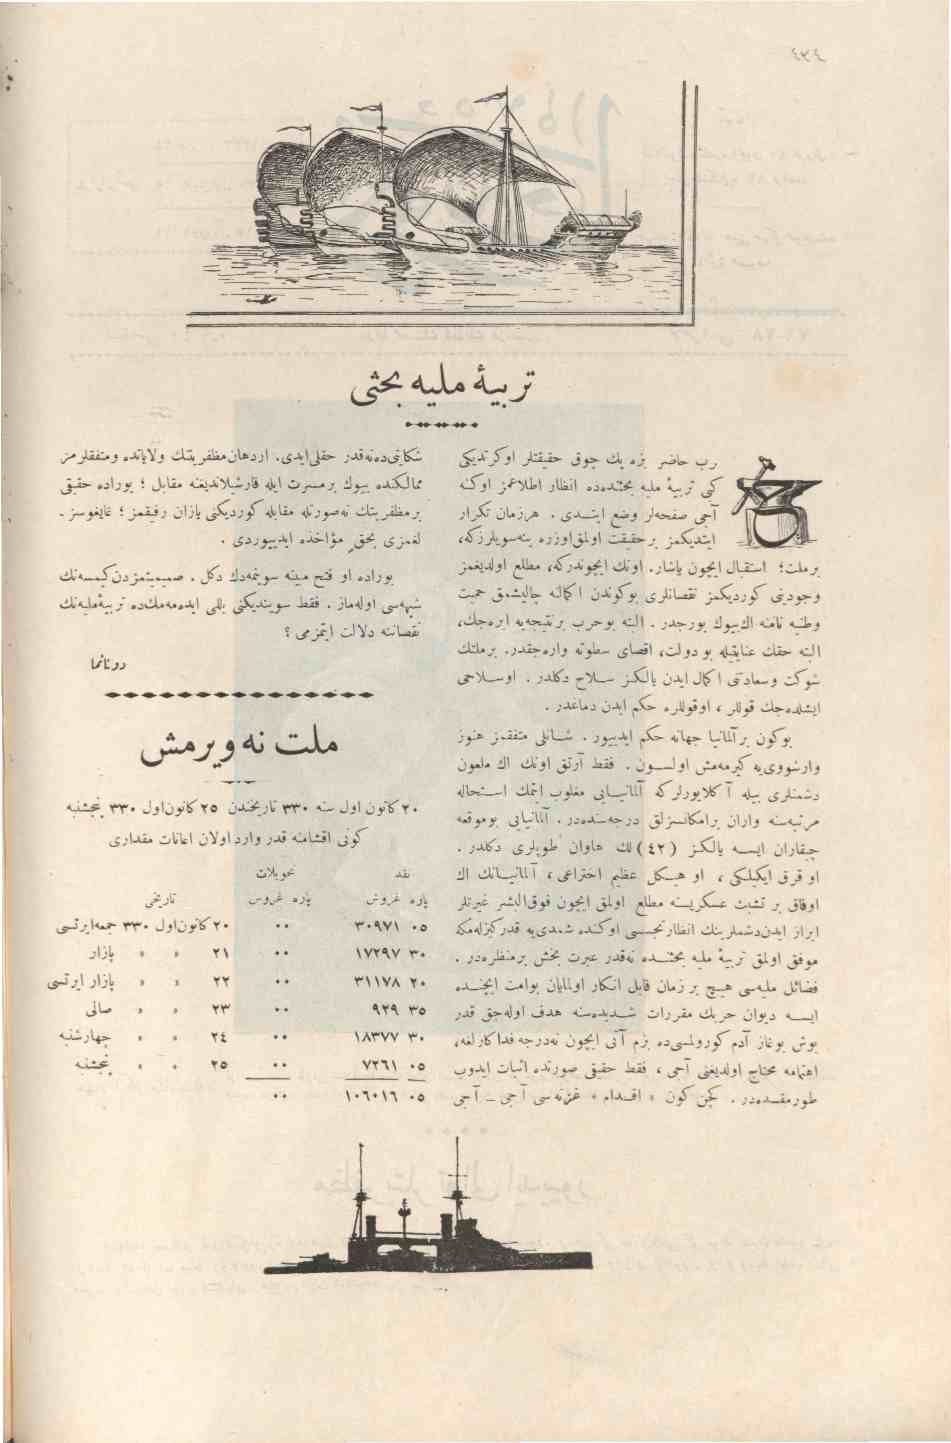 تربیهٔ ملیه بحثی
رب حاضر بزه پك چوق حقیقتلر اوکرتدیکی
کبی تربیهٔ ملیه بحثنده‌ده انظار اطلاعمز اوکنه
آجی صفحه‌لر وضع ایتـدی . هرزمان تکرار
ایتدیکمز برحقیقت اولمق‌اوزره ینه‌سویلرزکه،
برملت؛ استقبال ایچون یاشار. اونك ایچوندرکه، مطلع اولدیغمز
وجودینی کوردیکمز نقصانلری بوکوندن اکماله چالیشمق حمیت
وطنیه نامنه اك‌بیوك بورجدر . البته بوحرب برنتیجه‌یه ایره‌جك،
البته حقك عنایتیله بو دولت، اقصای سطوته واره‌جقدر. برملتك
شوکت وسعادتنی اکمال ایدن یالکـز ســلاح دکلدر . اوسـلاحی
ایشلده‌جك قوللر ، اوقوللره حکم ایدن دماغدر .
بوکون برآلمانیا جهانه حکم ایدییور . شـانلی متفقمز هنوز
وارشووی‌یه کیرمه‌مش اولســون . فقط آرتق اونك اك ملعون
دشمنلری بیله آکلایورلرکه آلمانیـایی مغلوب ایتمك اسـتحاله
مرتبه‌سنه واران برامکانسـزلق درجه‌سنده‌در. آلمانیایی بوموقعه
چیقاران ایسـه یالکـز (٤٢) لك هاوان طوپلری دکلدر .
او قرق ایکیلیکی ، او هیـکل عظیم اختراعی ، آلمانیـانك اك
اوفاق بر تشبث عسکریسنه مطلع اولمق ایچون فوق‌البشر غیرتلر
ابراز ایدن‌دشمنلرینك انظارتجسسی اوکنده شمدی‌یه قدرکیزله‌مکه
موفق اولمق تربیهٔ ملیه بحثنـده نه‌قدر عبرت بخش برمنظره‌در.
فضائل ملیه‌سی هیـچ برزمان قابل انکار اولمایان بوامت ایچنـده
ایسـه دیوان حربك مقررات شـدیده‌سنه هدف اوله‌جق قدر
بوش بوغاز آدم کورولمسی‌ده بزم آتی ایچون نه‌درجه‌فداکارلغه،
اهتمامه محتاج اولدیغنی آجی ، فقط حقیقی صورتده اثبات ایدوب
طورمقـده‌در . کچن کون « اقـدام » غزته‌سی آجی ــ آجی
شکایتی‌ده‌نه‌قدر حقلی‌ایدی. اردهان‌مظفریتنك ولایاتده ومتفقلرمز
ممالکنده بیوك برمسرت ایله قارشیلاندیغنه مقابل ؛ بوراده حقیقی
برمظفریتك نه‌صورتله مقابله کوردیکنی یازان رفیقمز ؛
لغمزی بحقٍ مؤاخذه ایدییوردی .
بوراده او فتح مبینه سوینمه‌دك دکل . صمیمیتمزدن‌کیمسه‌نك
شبهه‌سی اوله‌ماز . فقط سویندیکنی بللی ایده‌مه‌مك‌ده تربیهٔ‌ملیه‌نك
نقصاننه دلالت ایتمزمی ؟
دونانما
ملت نه ویرمش
٢٠ کانون اول سنه ٣٣٠ تاریخندن ٢٥ کانون‌اول ٣٣٠ پنجشنبه
کونی اقشامنه قدر وارد اولان اعانات مقداری
نقد تحویلات
پاره غروش پاره غروش تاریخی
٠٥ ٣٠٩٧١ ٠٠ ٢٠ کانون‌اول ٣٣٠ جمعه‌ایرتسی
٣٠ ١٧٢٩٧ ٠٠ ٢١ » » پازار
٢٠ ٣١١٧٨ ٠٠ ٢٢ » » پازار ایرتسی
٣٥ ٩٢٩ ٠٠ ٢٣ » » صالی
٣٠ ١٨٣٧٧ ٠٠ ٢٤ » » چهارشنبه
٠٥ ٧٢٦١ ٠٠ ٢٥ » » پنجشنبه
٠٥ ١٠٦٠١٦ ٠٠